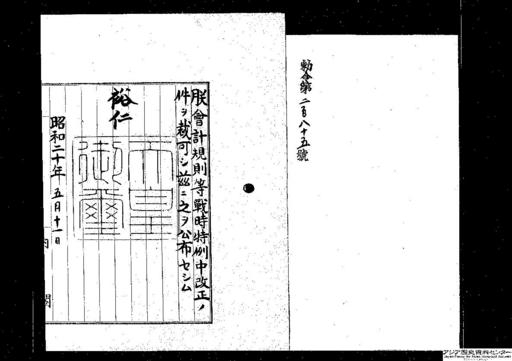 勅令第二百八十五號
朕會計規則等戰時特例中改正ノ
件ヲ裁可シ茲ニ之ヲ公布セシム
裕仁
天皇御璽
昭和二十年五月十一日
内閣
アジア歴史資料センター